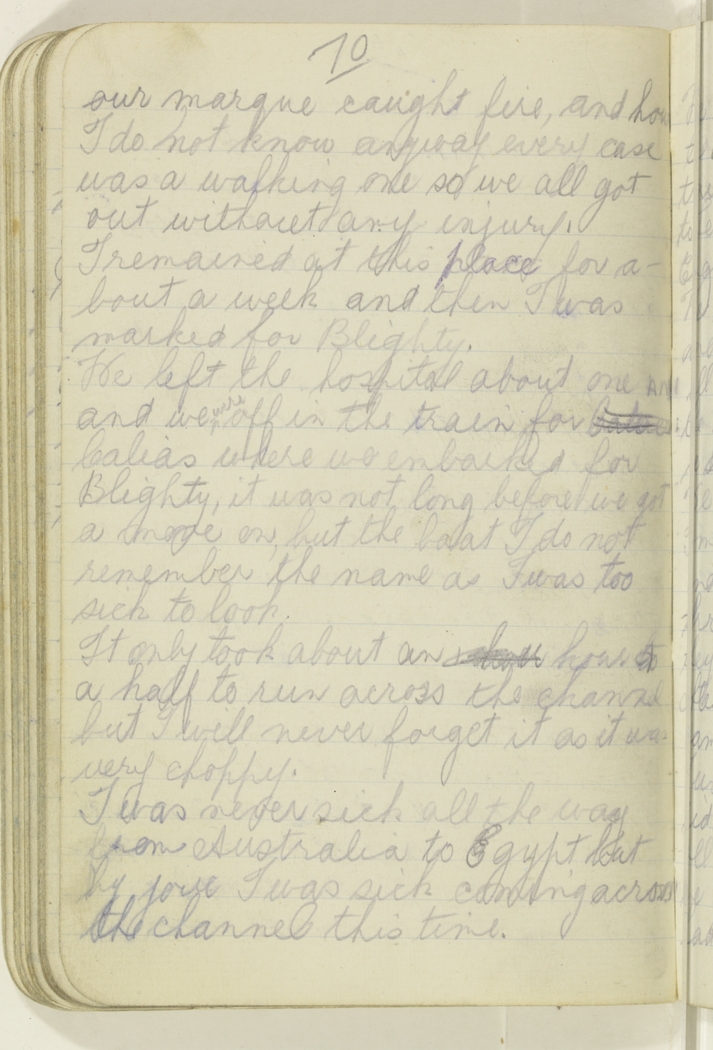 70
our marque caught fire, and how
I do not know anyway every case
was a walking one so we all got
out without any injury.
I remained at this place for a-
bout a week and then I was
marked for Blighty.
We left the hospital about one AM
and we were off in the train for
Calias where we embarked for
Blighty, it was not long before we got
a move on, but the boat I do not
remember the name as I was too
sick to look.
It only took about an hour &
a half to run across the channel
but I will never forget it as it was
very choppy.
I was never sick all the way
from Australia to Egypt but
by jove I was sick coming across
the channel this time.